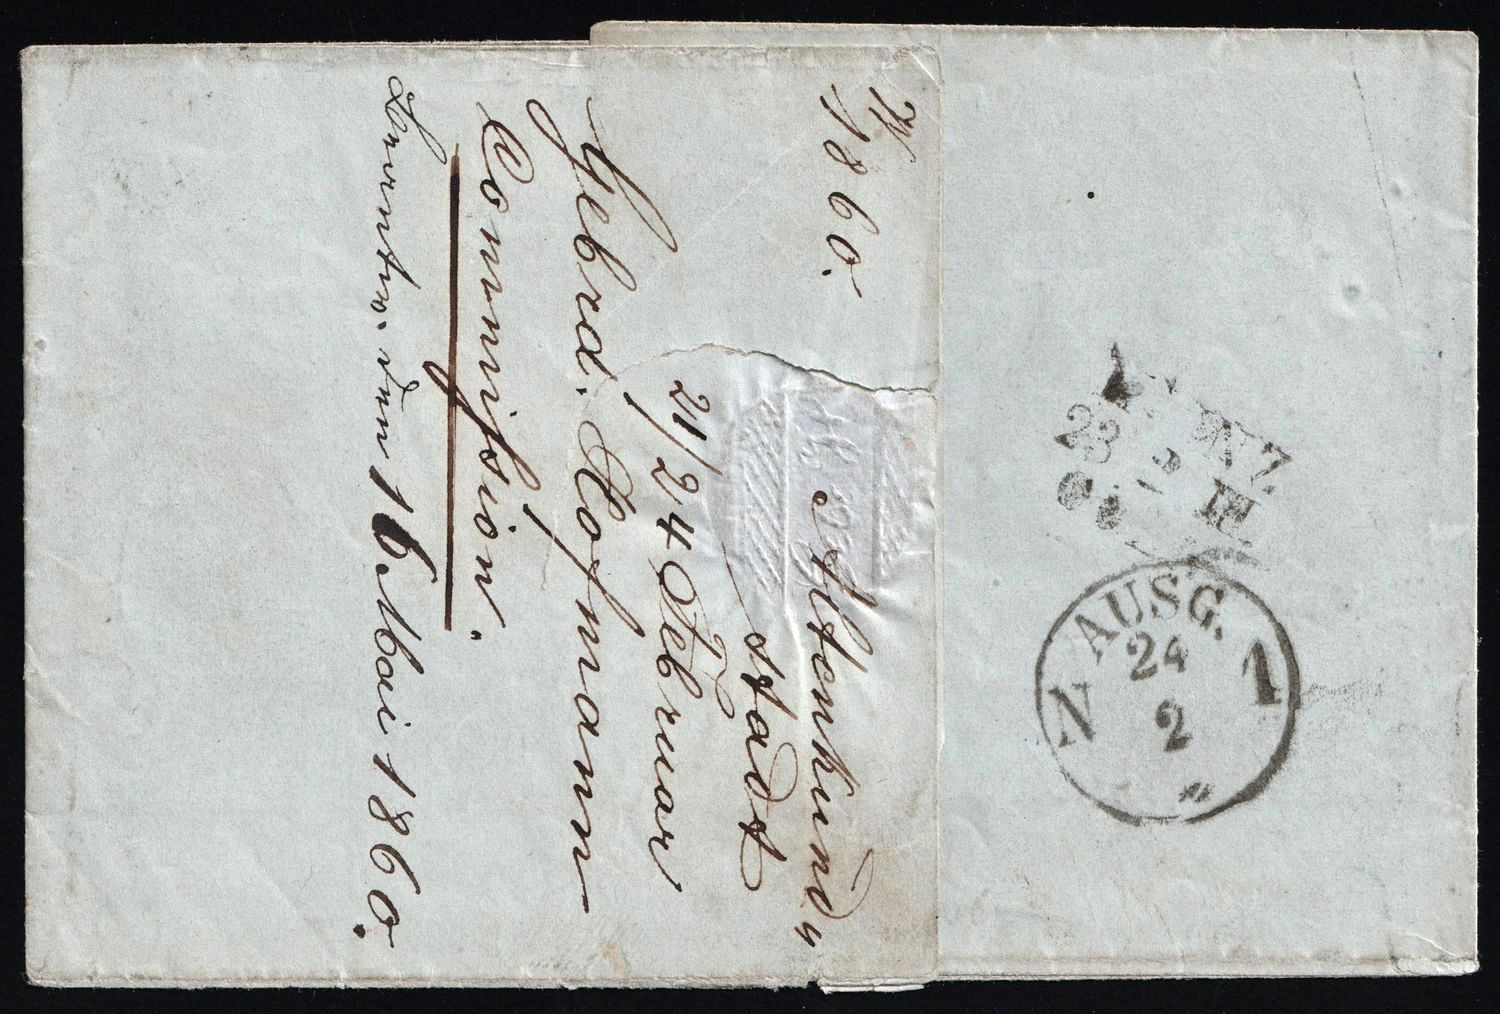 1860.
Altenkund
stadt
21/24 Februar
Gebrd. Hofmann
Commission.
den 16 Mai 1860.
23
III
AUSG.
24
N 1
2